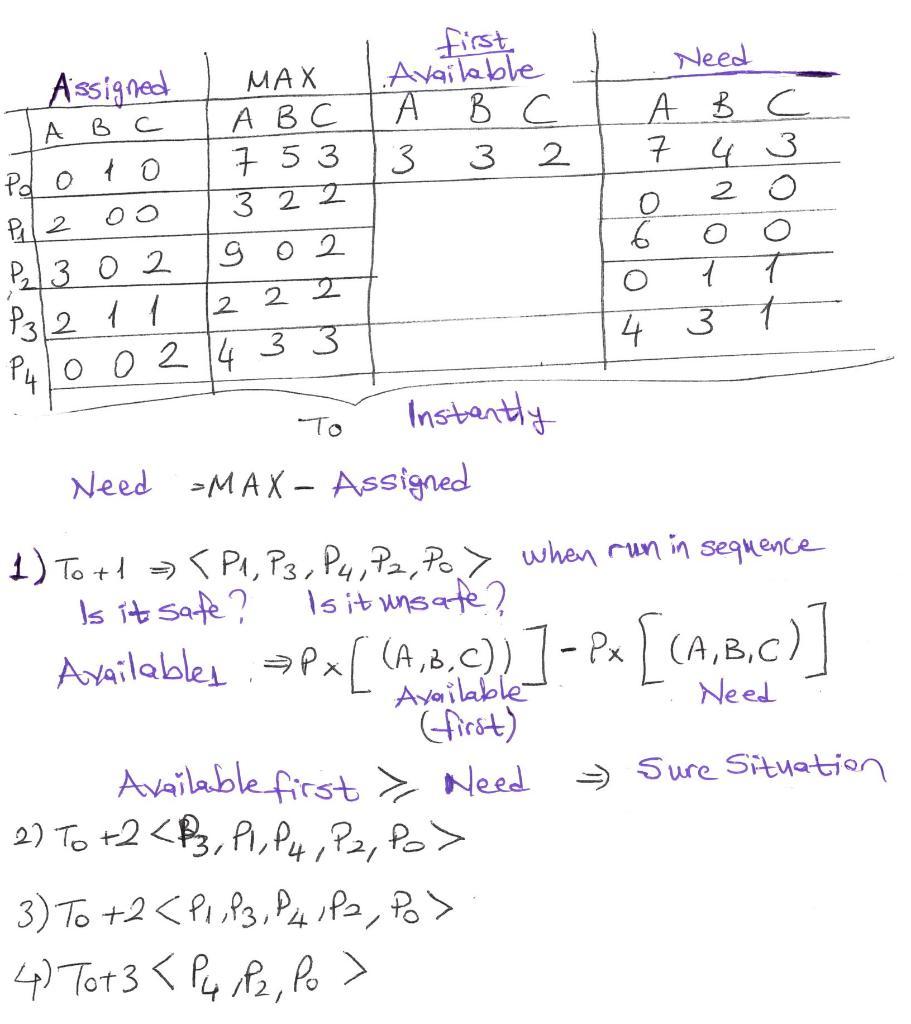 Assigned MAX first Available Need
A B C A B C A B C A B C
P0 0 1 0 7 5 3 3 3 2 7 4 3
P1 2 0 0 3 2 2 0 2 0
P2 3 0 2 9 0 2 6 0 0
P3 2 1 1 2 2 2 0 1 1
P4 0 0 2 4 3 3 4 3 1
To Instantly
Need = MAX - Assigned
1) To+1 ⇒ < P1, P3, P4, P2, P0 > when run in sequence
Is it safe? Is it unsafe?
Available1 ⇒ Px [ (A,B,C)) ] - Px [ (A,B,C) ]
Available Need
(first)
Available first ⩾ Need ⇒ Sure Situation
2) To +2 < P3, P1, P4, P2, P0 >
3) To +2 < P1, P3, P4, P2, P0 >
4) To+3 < P4, P2, P0 >